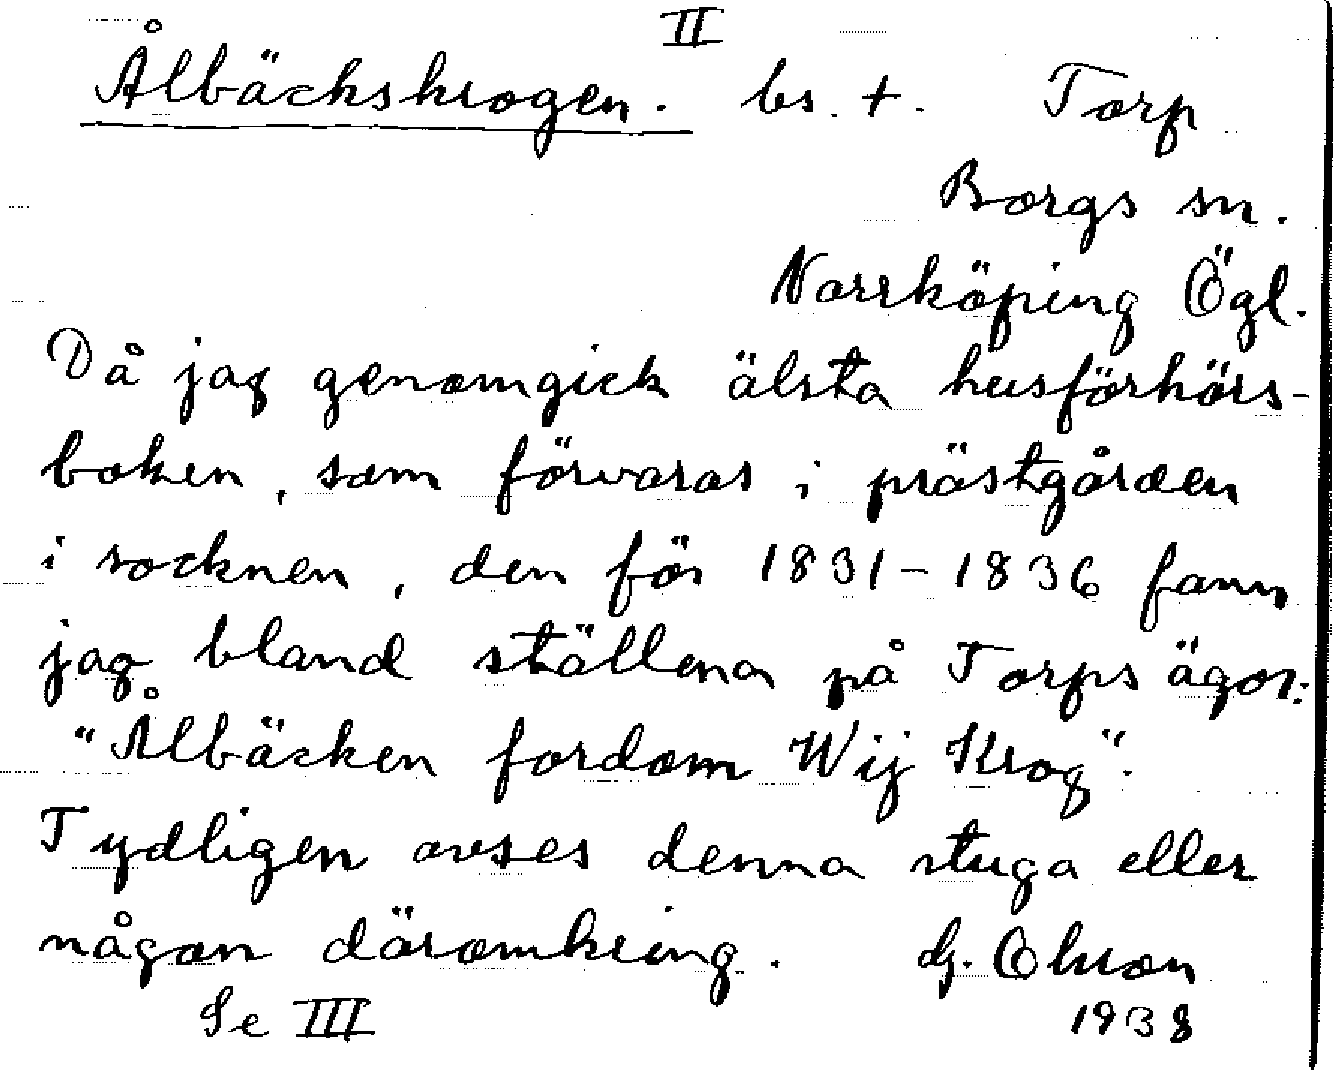 II
Ålbäckskrogen. bs. +. Torp
Borgs sn.
Norrköping Ögl.
Då jag genomgick älsta husförhörs-
boken, som förvaras i prästgården
i socknen, den för 1831-1836 fann
jag bland ställena på Torps ägor:
"Ålbäcken fordom Wij Krog".
Tydligen avses denna stuga eller
någon däromkring. G. Olson
Se III 1938